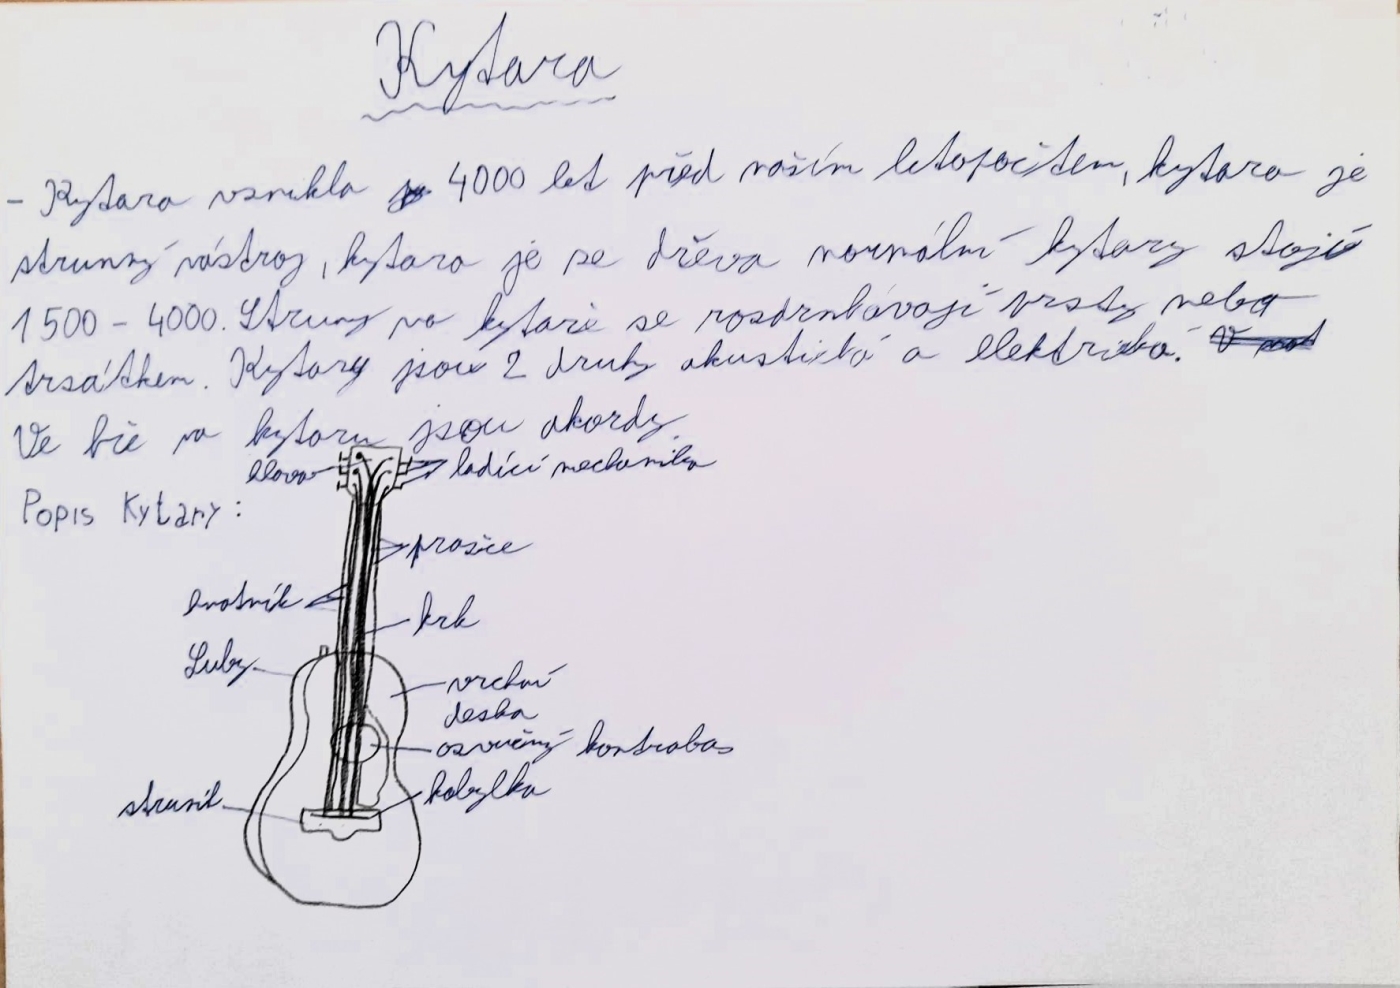 Kytara
- Kytara vznikla 4000 let před naším letopočtem, kytara je
strunný nástroj, kytara je ze dřeva normální kytary stojí
1500 - 4000. Struny na kytaře se rozdrnkávají prsty nebo
trsátkem. Kytary jsou 2 druhy akustická a elektrická.
Ve hře na kytaru jsou akordy.
hlava ladící mechanika
Popis Kytary:
pražce
hmatník
krk
Luby
vrchní
deska
ozvučný kontrabas
kobylka
struník